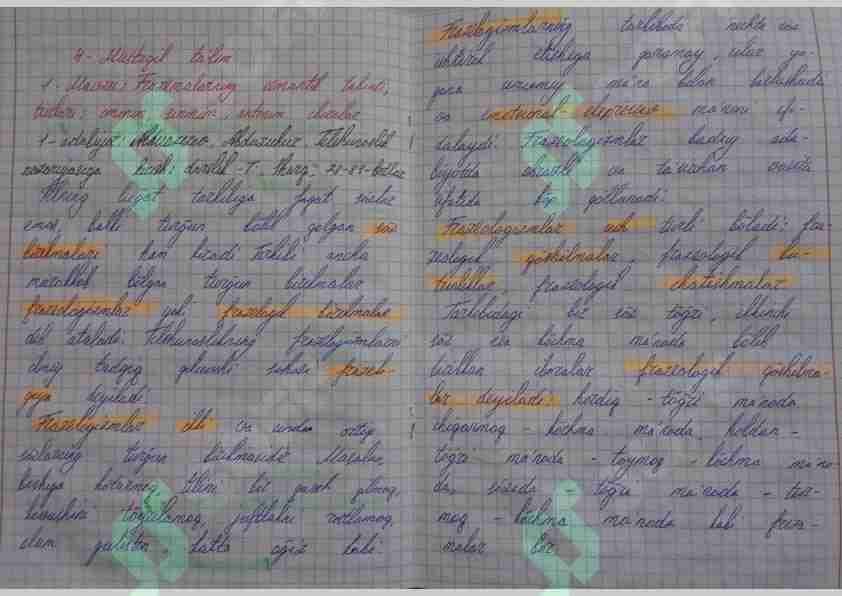 4 - Mustaqil ta'lim
1 - Mavzu: Frazemalarning semantik tabiati,
turlari: omonim, sinonim, antonim iboralar
1 - adabiyot: Abduzuhur, Tilshunoslik
nazariyasiga kirish: darslik - T.: Sharq,
Tilning lug'at tarkibiga faqat so'zlar
emas, balki turg'un bo'lib qolgan so'z
birikmalari ham kiradi. Tarkibi ancha
murakkab bo'lgan turg'un birikmalar
frazeologizmlar yoki frazeologik birikmalar
deb ataladi. Tilshunoslikning frazeologizmlarni
tadqiq qiluvchi sohasi frazeolo-
giya deyiladi.
Frazeologizmlar ikki va undan ortiq
so'zlarning turg'un birikmasidir. Masalan,
boshga ko'tarmoq, tilini bir qarich qilmoq,
kovushini to'g'rilamoq, juftakni rostlamoq,
katta og'iz kabi.
Frazeologizmlarning tarkibida nechta so'z
ishtirok etishiga qaramay, ular ya-
gona umumiy ma'no bilan birlashadi
va emotsional-ekspressiv ma'noni if-
odalaydi. Frazeologizmlar badiiy ada-
biyotda obrazli va ta'sirchan vosita
sifatida qo'llanadi.
Frazeologizmlar uch turli bo'ladi: fra-
zeologik qo'shilmalar, frazeologik bu-
tunliklar, frazeologik chatishmalar.
Tarkibidagi bir so'z to'g'ri, ikkinchi
so'z esa ko'chma ma'noda bo'lib
birikkan iboralar frazeologik qo'shilma-
lar deyiladi: - to'g'ri ma'noda
chiqarmoq - ko'chma ma'noda, ko'ldan -
to'g'ri ma'noda - toymoq - ko'chma ma'no-
da, so'zida - to'g'ri ma'noda - tur-
moq - ko'chma ma'noda kabi fraze-
malar bor.